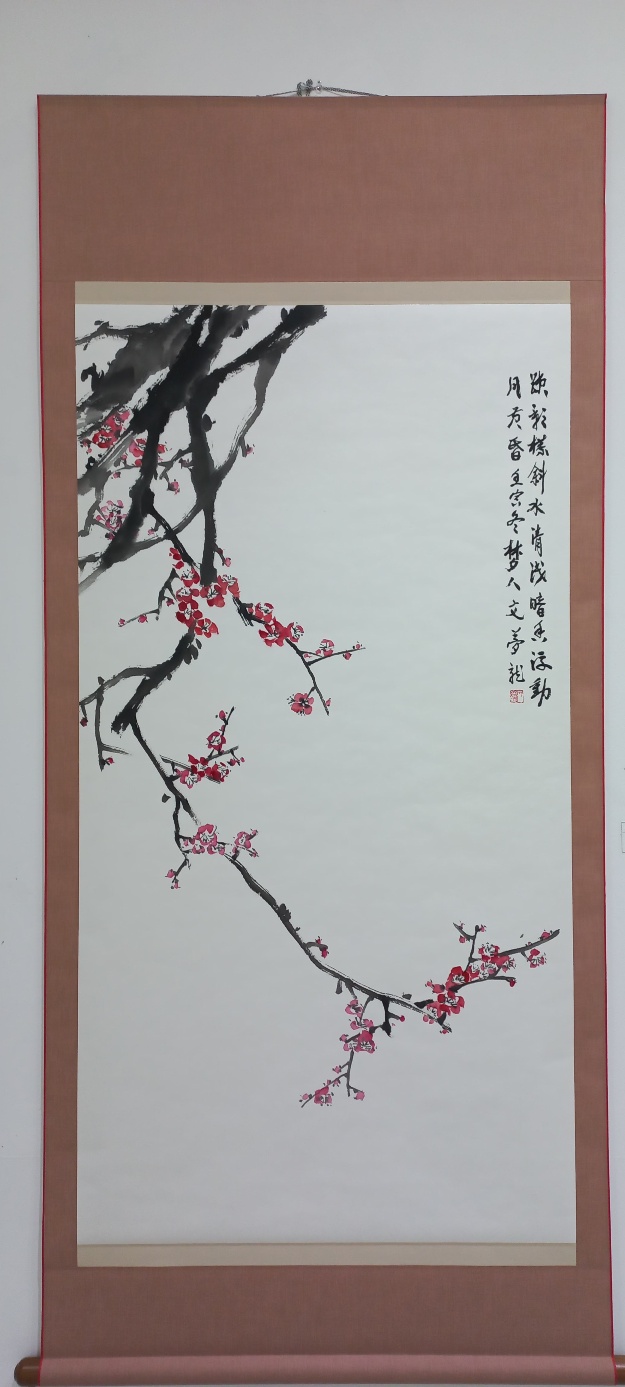 疏影横斜水清浅暗香浮動
月黄昏壬寅冬梦人文夢龍